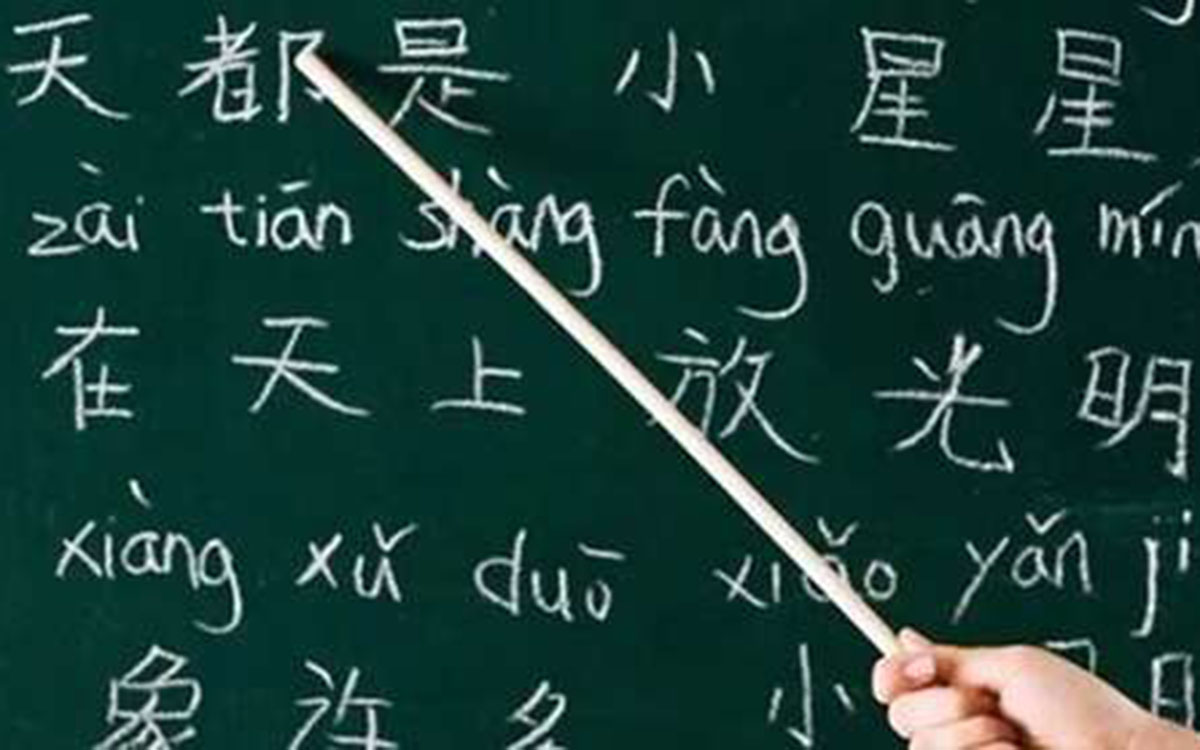 天 都 是 小 星 星
zài tiān shàng fàng guāng mín
在 天 上 放 光 明
xiàng xǔ duō xiǎo yǎn ji
象 许 多 小